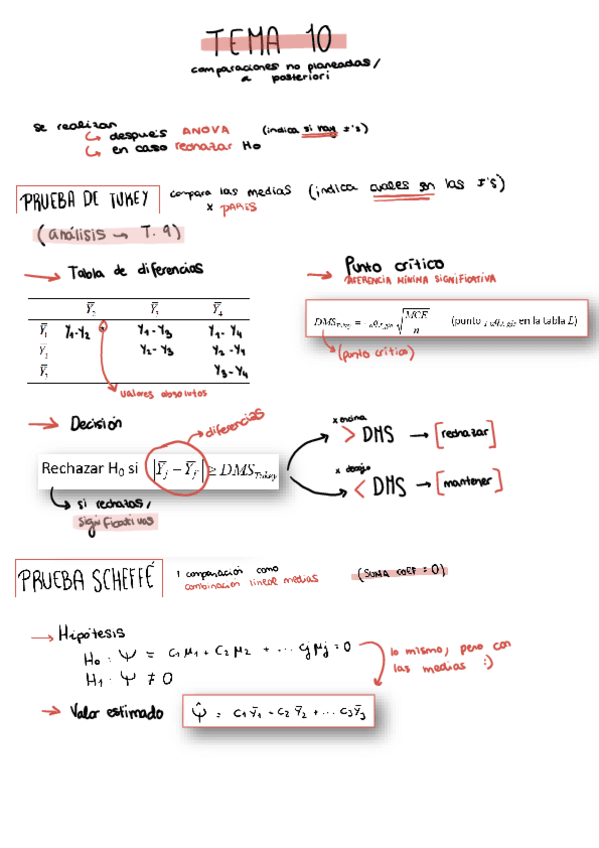 TEMA 10
comparaciones no planeadas/
a posteriori
se realizan
↳ después ANOVA (indica si hay ≠'s)
↳ en caso rechazar H₀
PRUEBA DE TUKEY compara las medias (indica cuales son las ≠'s)
x PARES
(análisis → T. 9)
→ Tabla de diferencias
Ȳ₂ Ȳ₃ Ȳ₄
Ȳ₁ Y₁-Y₂ Y₁-Y₃ Y₁-Y₄
Ȳ₂ Y₂-Y₃ Y₂-Y₄
Ȳ₃ Y₃-Y₄
valores absolutos
→ Punto crítico
DIFERENCIA MÍNIMA SIGNIFICATIVA
DMS_Tukey = √(MCE/n) (punto en la tabla L)
(punto crítico)
→ Decisión
diferencias
Rechazar H₀ si |Ȳj − Ȳj'| ≥ DMS_Tukey
si rechazas,
significativas
x encima
> DMS → [rechazar]
x debajo
< DMS → [mantener]
PRUEBA SCHEFFÉ 1 comparación como (SUMA COEF = 0)
combinación lineal medias
→ Hipótesis
H₀ : Ψ = c₁μ₁ + c₂μ₂ + ... cjμj = 0
H₁ : Ψ ≠ 0
lo mismo, pero con
las medias :)
→ Valor estimado Ψ̂ = c₁Ȳ₁ + c₂Ȳ₂ + ... c₃Ȳ₃